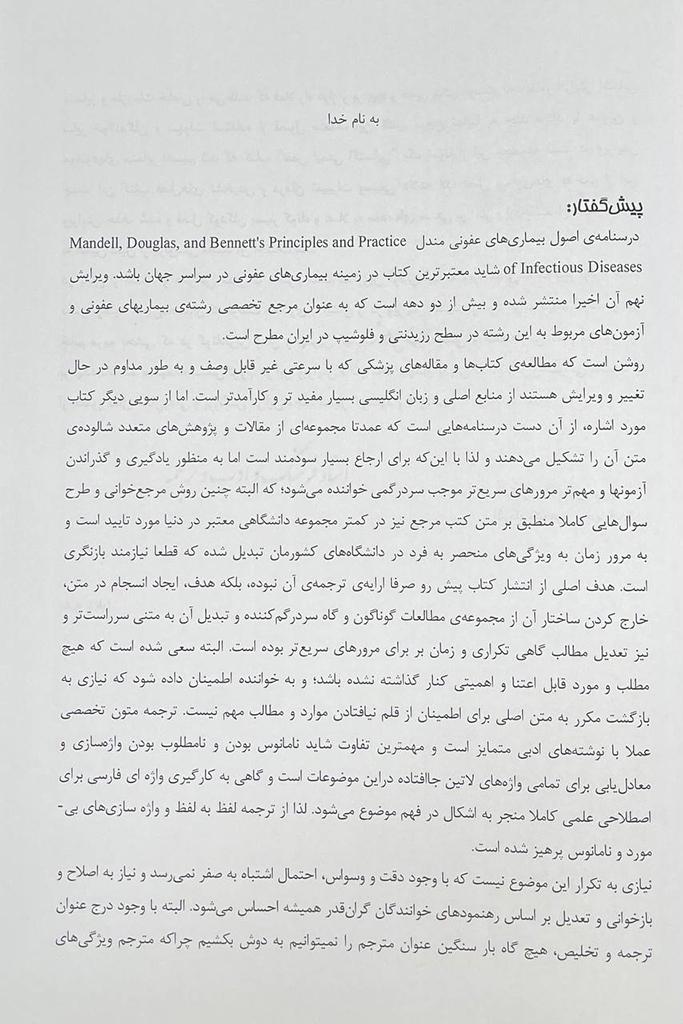 به نام خدا
پیش‌گفتار:
درسنامه‌ی اصول بیماری‌های عفونی مندل Mandell, Douglas, and Bennett's Principles and Practice
of Infectious Diseases شاید معتبرترین کتاب در زمینه بیماری‌های عفونی در سراسر جهان باشد. ویرایش
نهم آن اخیرا منتشر شده و بیش از دو دهه است که به عنوان مرجع تخصصی رشته‌ی بیماریهای عفونی و
آزمون‌های مربوط به این رشته در سطح رزیدنتی و فلوشیپ در ایران مطرح است.
روشن است که مطالعه‌ی کتاب‌ها و مقاله‌های پزشکی که با سرعتی غیر قابل وصف و به طور مداوم در حال
تغییر و ویرایش هستند از منابع اصلی و زبان انگلیسی بسیار مفید تر و کارآمدتر است. اما از سویی دیگر کتاب
مورد اشاره، از آن دست درسنامه‌هایی است که عمدتا مجموعه‌ای از مقالات و پژوهش‌های متعدد شالوده‌ی
متن آن را تشکیل می‌دهند و لذا با این‌که برای ارجاع بسیار سودمند است اما به منظور یادگیری و گذراندن
آزمونها و مهم‌تر مرورهای سریع‌تر موجب سردرگمی خواننده می‌شود؛ که البته چنین روش مرجع‌خوانی و طرح
سوال‌هایی کاملا منطبق بر متن کتب مرجع نیز در کمتر مجموعه دانشگاهی معتبر در دنیا مورد تایید است و
به مرور زمان به ویژگی‌های منحصر به فرد در دانشگاه‌های کشورمان تبدیل شده که قطعا نیازمند بازنگری
است. هدف اصلی از انتشار کتاب پیش رو صرفا ارایه‌ی ترجمه‌ی آن نبوده، بلکه هدف، ایجاد انسجام در متن،
خارج کردن ساختار آن از مجموعه‌ی مطالعات گوناگون و گاه سردرگم‌کننده و تبدیل آن به متنی سرراست‌تر و
نیز تعدیل مطالب گاهی تکراری و زمان بر برای مرورهای سریع‌تر بوده است. البته سعی شده است که هیچ
مطلب و مورد قابل اعتنا و اهمیتی کنار گذاشته نشده باشد؛ و به خواننده اطمینان داده شود که نیازی به
بازگشت مکرر به متن اصلی برای اطمینان از قلم نیافتادن موارد و مطالب مهم نیست. ترجمه متون تخصصی
عملا با نوشته‌های ادبی متمایز است و مهمترین تفاوت شاید نامانوس بودن و نامطلوب بودن واژه‌سازی و
معادل‌یابی برای تمامی واژه‌های لاتین جاافتاده دراین موضوعات است و گاهی به کارگیری واژه ای فارسی برای
اصطلاحی علمی کاملا منجر به اشکال در فهم موضوع می‌شود. لذا از ترجمه لفظ به لفظ و واژه سازی‌های بی-
مورد و نامانوس پرهیز شده است.
نیازی به تکرار این موضوع نیست که با وجود دقت و وسواس، احتمال اشتباه به صفر نمی‌رسد و نیاز به اصلاح و
بازخوانی و تعدیل بر اساس رهنمودهای خوانندگان گران‌قدر همیشه احساس می‌شود. البته با وجود درج عنوان
ترجمه و تخلیص، هیچ گاه بار سنگین عنوان مترجم را نمیتوانیم به دوش بکشیم چراکه مترجم ویژگی‌های